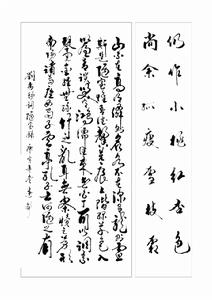 仍作小桃红杏色
尚余孤瘦雪枝霜
山不在高有仙则名水不在深有龙则灵
斯是陋室惟吾德馨苔痕上阶绿草色入
帘青谈笑有鸿儒往来无白丁可以调素
琴阅金经无丝竹之乱耳无案牍之劳形
南阳诸葛庐西蜀子云亭孔子云何陋之有
刘禹锡词陋室铭